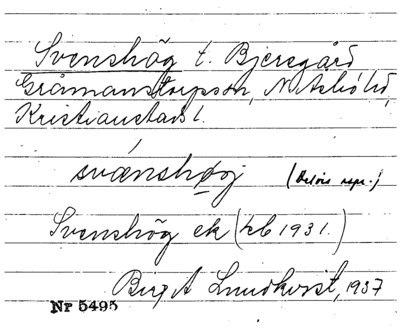 Svenshög t. Bjersgård
Gråmanstorpssn, N. Åsbo hd,
Kristianstads l.
svænshøj (Delvis repr.)
Svenshög ek (kb 1931.)
Birgit Lundkvist, 1937
Nr 5495